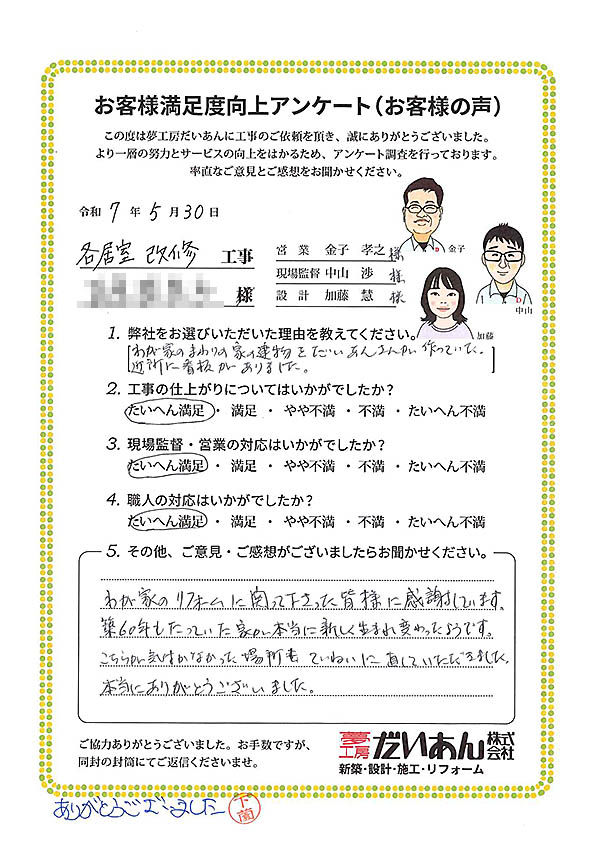 お客様満足度向上アンケート（お客様の声）
この度は夢工房だいあんに工事のご依頼を頂き、誠にありがとうございました。
より一層の努力とサービスの向上をはかるため、アンケート調査を行っております。
率直なご意見とご感想をお聞かせください。
令和 7 年 5 月 30 日
各居室 改修 工事
様
営業 金子 孝之 様
現場監督 中山 渉 様
設計 加藤 慧 様
金子
中山
加藤
1. 弊社をお選びいただいた理由を教えてください。
[わが家のまわりの家の建物をだいあんさんが作っていた。
近所に看板がありました。]
2. 工事の仕上がりについてはいかがでしたか？
たいへん満足 ・ 満足 ・ やや不満 ・ 不満 ・ たいへん不満
3. 現場監督・営業の対応はいかがでしたか？
たいへん満足 ・ 満足 ・ やや不満 ・ 不満 ・ たいへん不満
4. 職人の対応はいかがでしたか？
たいへん満足 ・ 満足 ・ やや不満 ・ 不満 ・ たいへん不満
5. その他、ご意見・ご感想がございましたらお聞かせください。
わが家のリフォームに関って下さった皆様に感謝しています。
築60年もたっていた家が本当に新しく生まれ変わったようです。
こちらが気付かなかった場所もていねいに直していただきました。
本当にありがとうございました。
ご協力ありがとうございました。お手数ですが、
同封の封筒にてご返信くださいませ。
夢工房 だいあん 株式会社
新築・設計・施工・リフォーム
ありがとうございました 下薗